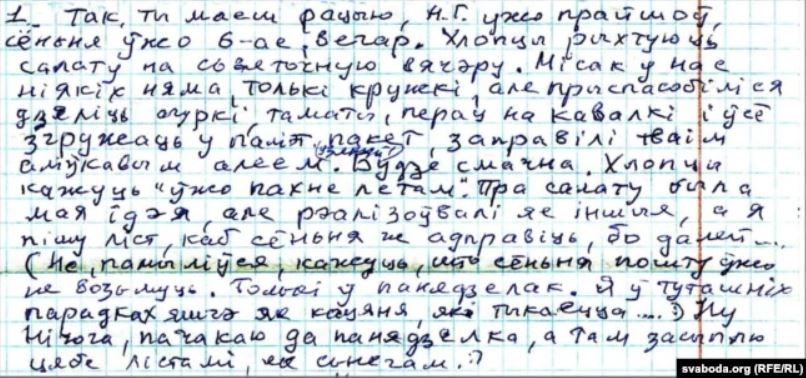 1. Так, ты маеш рацыю, Н.Г. ужо прайшоў,
сёньня ўжо 6-ае, вечар. Хлопцы рыхтуюць
салату на сьвяточную вячэру. Місак у нас
ніякіх няма, толькі кружкі, але прыспасобіліся
дзяліць агуркі, таматы, перац на кавалкі і ўсё
згружаць у пакет, заправілі тваім
аліўкавым алеем. Будзе смачна. Хлопцы
кажуць "ўжо пахне летам". Пра салату была
мая ідэя, але рэалізоўвалі яе іншыя, а я
пішу ліст, каб сёньня ж адправіць, бо далей...
(Не, памыліўся, кажуць, што сёньня пошту ўжо
не возьмуць. Толькі ў панядзелак. Я ў туташніх
парадках яшчэ як кацяня, які тыкаецца ... :) Ну
нічога, пачакаю да панядзелка, а там засыплю
цябе лістамі, як сьнегам. :)
svaboda.org (RFE/RL)